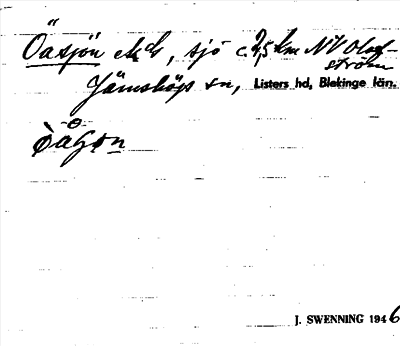 Öasjön
, sjö c. 2,5 km NV Olof-
ström
Jämshögs sn, Listers hd, Blekinge län.
J. SWENNING 1946